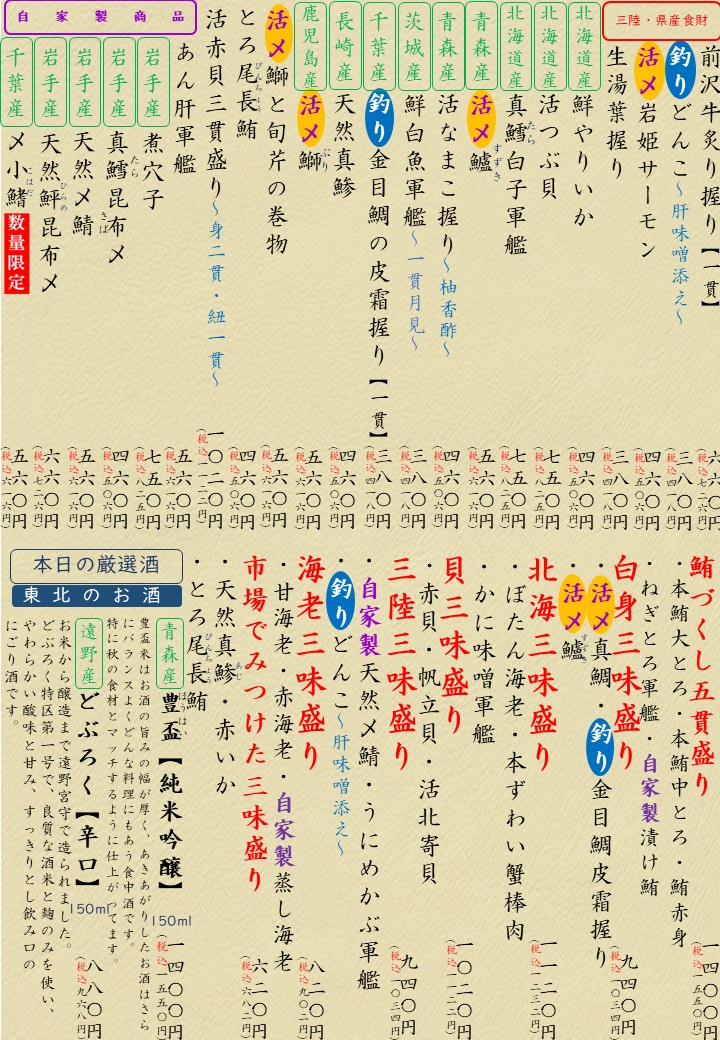 三陸・県産食財
前沢牛炙り握り【一貫】 六六〇円 (税込七二六円)
釣りどんこ～肝味噌添え～ 三八〇円 (税込四一八円)
活〆岩姫サーモン 四六〇円 (税込五〇六円)
生湯葉握り 三八〇円 (税込四一八円)
北海道産 鮮やりいか 四六〇円 (税込五〇六円)
北海道産 活つぶ貝 七五〇円 (税込八二五円)
北海道産 真鱈白子軍艦 七五〇円 (税込八二五円)
たら
青森産 活〆鱸 五六〇円 (税込六一六円)
すずき
青森産 活なまこ握り～柚香酢～ 四六〇円 (税込五〇六円)
茨城産 鮮白魚軍艦～一貫月見～ 三八〇円 (税込四一八円)
千葉産 釣り金目鯛の皮霜握り【一貫】 三八〇円 (税込四一八円)
長崎産 天然真鯵 四六〇円 (税込五〇六円)
鹿児島産 活〆鰤 五六〇円 (税込六一六円)
ぶり
活〆鰤と旬芹の巻物 五六〇円 (税込六一六円)
とろ尾長鮪 四六〇円 (税込五〇六円)
びんちょう
活赤貝三貫盛り～身二貫・紐一貫～ 一〇二〇円 (税込一一二二円)
あん肝軍艦 五六〇円 (税込六一六円)
自家製商品
岩手産 煮穴子 七五〇円 (税込八二五円)
岩手産 真鱈昆布〆 四六〇円 (税込五〇六円)
たら
岩手産 天然〆鯖 五六〇円 (税込六一六円)
さば
岩手産 天然鮃昆布〆 六六〇円 (税込七二六円)
ひらめ
千葉産 〆小鰭 数量限定 五六〇円 (税込六一六円)
こはだ
鮪づくし五貫盛り 一四〇〇円 (税込一五四〇円)
・本鮪大とろ・本鮪中とろ・鮪赤身
・ねぎとろ軍艦・自家製漬け鮪
白身三味盛り 九四〇円 (税込一〇三四円)
・活〆真鯛・釣り金目鯛皮霜握り
・活〆鱸
すずき
北海三味盛り 一一二〇円 (税込一二三二円)
・ぼたん海老・本ずわい蟹棒肉
・かに味噌軍艦
貝三味盛り 一〇二〇円 (税込一一二二円)
・赤貝・帆立貝・活北寄貝
三陸三味盛り 九四〇円 (税込一〇三四円)
・自家製天然〆鯖・うにめかぶ軍艦
・釣りどんこ～肝味噌添え～
海老三味盛り 八二〇円 (税込九〇二円)
・甘海老・赤海老・自家製蒸し海老
市場でみつけた三味盛り 六二〇円 (税込六八二円)
・天然真鯵・赤いか
あじ
・とろ尾長鮪
びんちょう
本日の厳選酒
東北のお酒
青森産 豊盃【純米吟醸】 150ml 一四〇〇円 (税込一五四〇円)
ほうはい
豊盃米はお酒の旨みの幅が厚く、あきあがりしたお酒はさら
にバランスよくどんな料理にもあう食中酒です。
特に秋の食材とマッチするように仕上がってます。
遠野産 どぶろく【辛口】 150ml 八八〇円 (税込九六八円)
お米から醸造まで遠野宮守で造られました。
どぶろく特区第一号で、良質な酒米と麹のみを使い、
やわらかい酸味と甘み、すっきりとし飲み口の
にごり酒です。